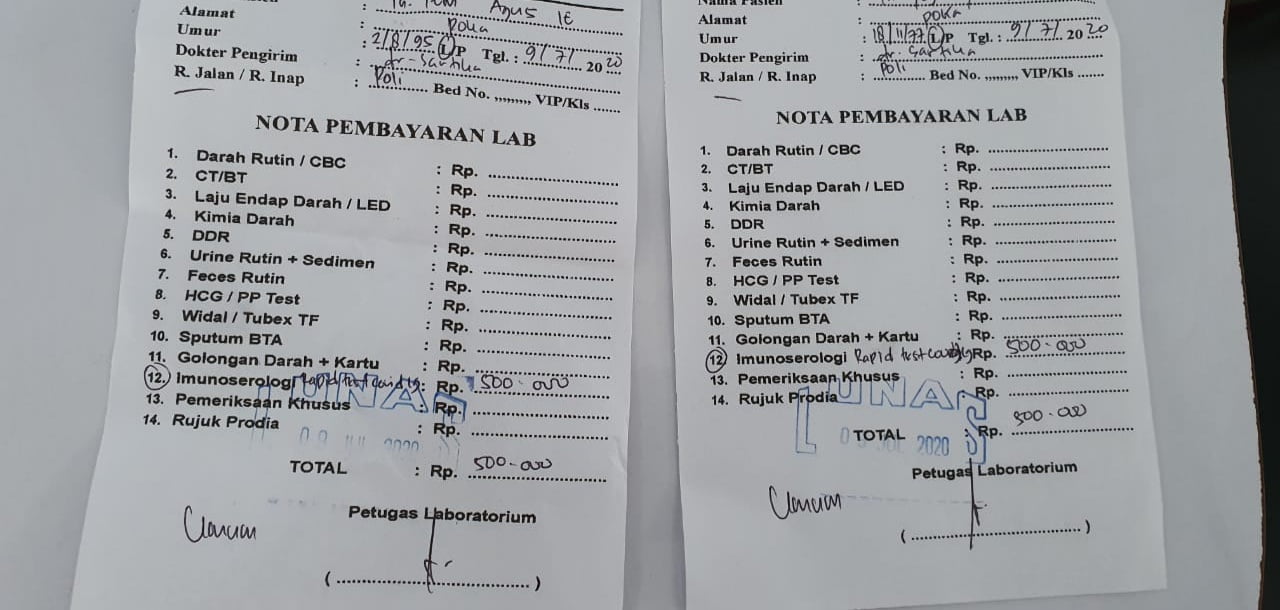 Agus IE
Alamat : Poka
Umur : 2/8/95 L/P Tgl. : 9/7/ 2020
Dokter Pengirim : dr. Sartika
R. Jalan / R. Inap : Poli Bed No. ,,,,,,,,, VIP/Kls .......
NOTA PEMBAYARAN LAB
1. Darah Rutin / CBC : Rp. ..............................
2. CT/BT : Rp. ..............................
3. Laju Endap Darah / LED : Rp. ..............................
4. Kimia Darah : Rp. ..............................
5. DDR : Rp. ..............................
6. Urine Rutin + Sedimen : Rp. ..............................
7. Feces Rutin : Rp. ..............................
8. HCG / PP Test : Rp. ..............................
9. Widal / Tubex TF : Rp. ..............................
10. Sputum BTA : Rp. ..............................
11. Golongan Darah + Kartu : Rp. ..............................
12. Imunoserologi Rapid test covid 19 : Rp. 500.000
13. Pemeriksaan Khusus : Rp. ..............................
14. Rujuk Prodia : Rp. ..............................
LUNAS
09 JUL 2020
TOTAL : Rp. 500.000
Umum
Petugas Laboratorium
( ............................................. )
Nama Pasien
Alamat : Poka
Umur : 18/11/77 L/P Tgl. : 9/7/ 2020
Dokter Pengirim : dr. Sartika
R. Jalan / R. Inap : Poli Bed No. ,,,,,,,,, VIP/Kls .......
NOTA PEMBAYARAN LAB
1. Darah Rutin / CBC : Rp. ..............................
2. CT/BT : Rp. ..............................
3. Laju Endap Darah / LED : Rp. ..............................
4. Kimia Darah : Rp. ..............................
5. DDR : Rp. ..............................
6. Urine Rutin + Sedimen : Rp. ..............................
7. Feces Rutin : Rp. ..............................
8. HCG / PP Test : Rp. ..............................
9. Widal / Tubex TF : Rp. ..............................
10. Sputum BTA : Rp. ..............................
11. Golongan Darah + Kartu : Rp. ..............................
12. Imunoserologi Rapid test covid 19 Rp. 500.000
13. Pemeriksaan Khusus : Rp. ..............................
14. Rujuk Prodia : Rp.
LUNAS
09 JUL 2020
TOTAL : Rp. 500.000
Umum
Petugas Laboratorium
( ............................................. )